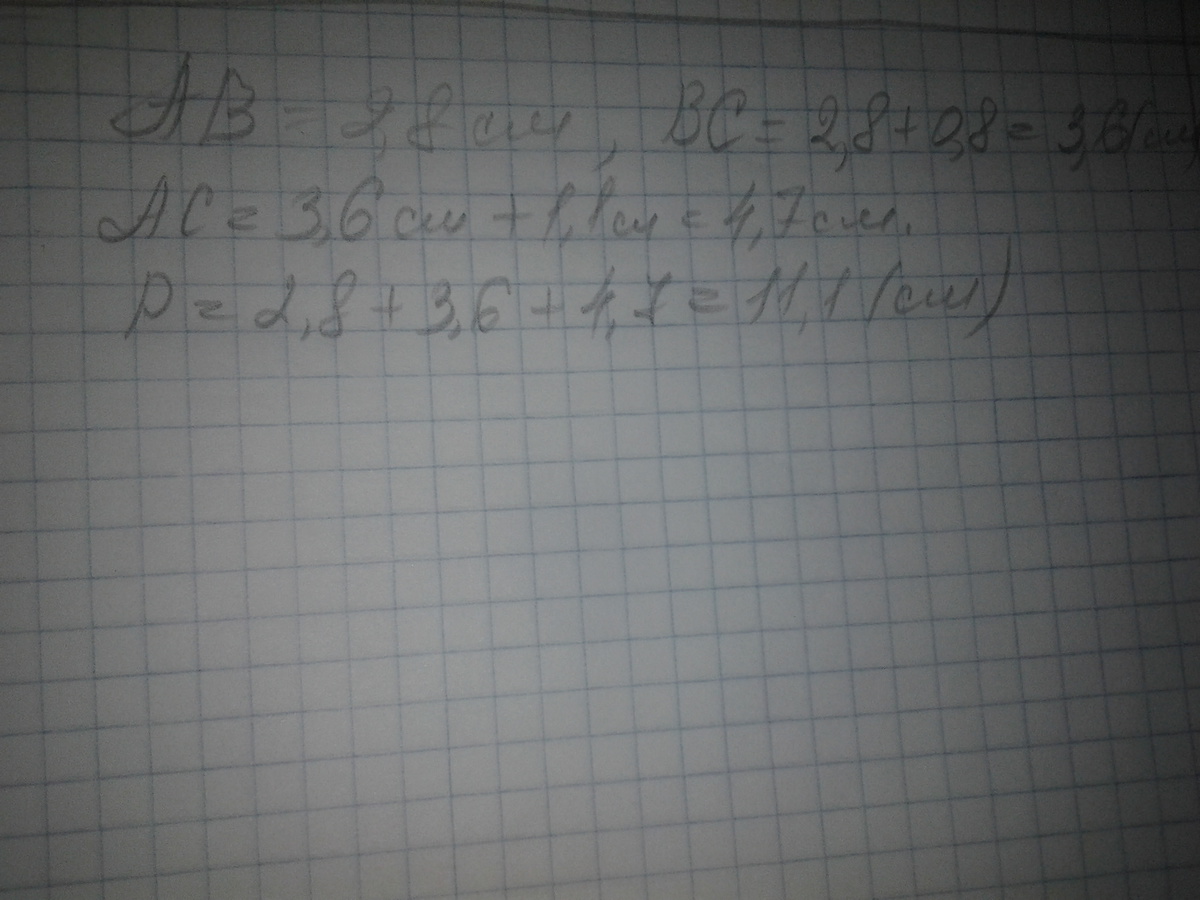 AB = 2,8 см, BC = 2,8 + 0,8 = 3,6 (см
AC = 3,6 см + 1,1 см = 4,7 см.
P = 2,8 + 3,6 + 4,7 = 11,1 (см)